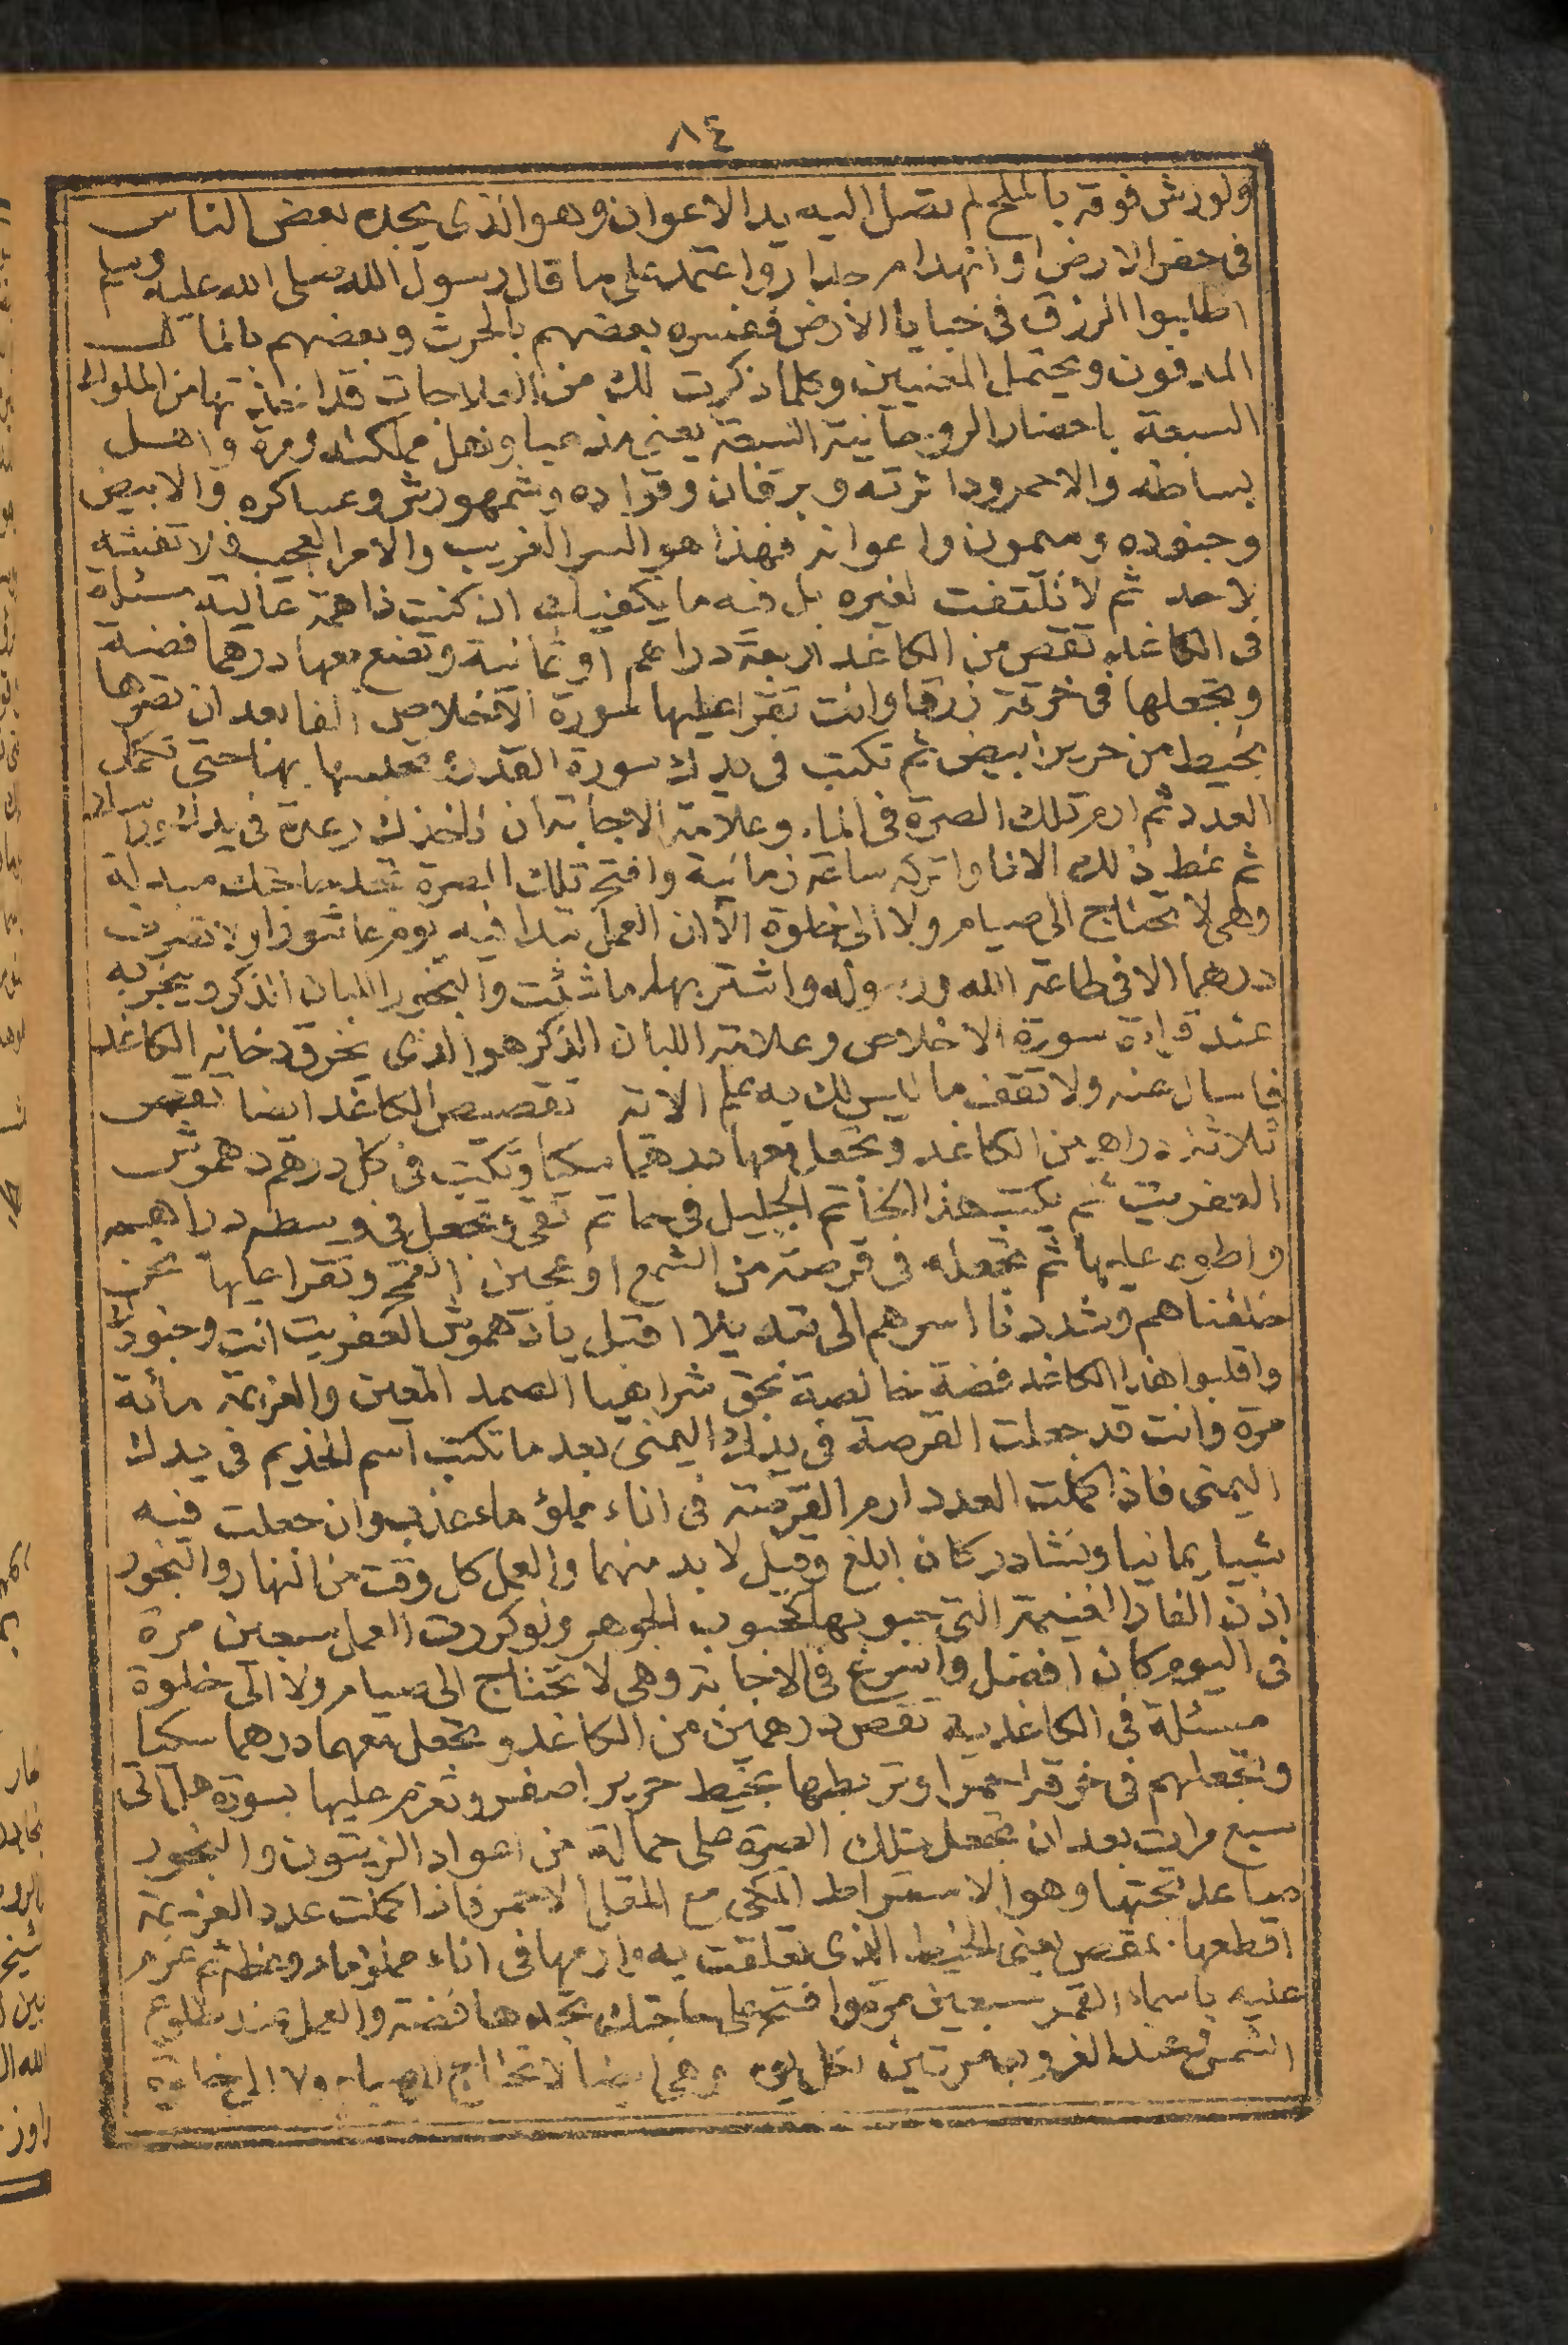 ٨٤
ولو رش فوقه بالملح لم تصل اليه يد الاعوان وهو الذى يجده بعض الناس
فى حفر الارض او انهدام جدار واعتمد على ما قال رسول الله صلى الله عليه وسلم
اطلبوا الرزق فى خبايا الأرض ففسره بعضهم بالحرث وبعضهم بالمال
المدفون ويحتمل المعنيين وكلما ذكرت لك من العلاجات قد اخذتها من الملوك
السبعة باحضار الروحانية السبعة يعنى مذهبا واهل مملكته ومرة واهل
بساطه والاحمر ودائرته وبرقان وقواده وشمهورش وعساكره والابيض
وجنوده وميمون واعوانه فهذا هو السر الغريب والامر العجيب فلا تفشيه
لاحد ثم لا تلتفت لغيره بل فيه ما يكفيك ان كنت ذا همة عالية مسئلة
فى الكاغد تقص من الكاغد اربعة دراهم او ثمانية وتضع معها درهما فضة
وتجعلها فى خرقة زرقا وانت تقرا عليها سورة الاخلاص الفا بعد ان تصرها
بخيط من حرير ابيض ثم تكتب فى يدك سورة القدر بها حتى تكمل
العدد ثم ارم تلك الصرة فى الماء وعلامة الاجابة ان تاخذك رعدة فى يدك
ثم غط ذلك الانا واتركه ساعة زمانية وافتح تلك الصرة تجد حاجتك مبدلة
وهى لا تحتاج الى صيام ولا الى خلوة الا ان العمل تبدا فيه يوم عاشورا ولا تصرف
درهما الا فى طاعة الله ورسوله واشتر بها ما شئت والبخور اللبان الذكر ويبخر به
عند قراءة سورة الاخلاص وعلامة اللبان الذكر هو الذى يخرق دخانه الكاغد
فاسال عنه ولا تقف ما ليس لك به علم الاية تقصيص الكاغد ايضا تقص
ثلاثة دراهم من الكاغد وتجعل معها درهما سكيا وتكتب فى كل درهم دهموش
العفريت ثم يكتب هذا الخاتم الجليل فى وتجعل فى وسطه دراهمه
واطوه عليها ثم تجعله فى قرصة من الشمع او عجين القمح وتقرا عليها نحن
خلقناهم وشددنا اسرهم الى تبديلا اقبل يا دهموش العفريت انت وجنودك
واقلبوا هذا الكاغد فضة خالصة بحق شراهيا الصمد المعين والعزيمة مائة
مرة وانت قد جعلت القرصة فى يدك اليمنى بعد ما تكتب اسم الخديم فى يدك
اليمنى فاذا كملت العدد ارم القرصة فى اناء مملؤ ماء عذب وان جعلت فيه
شبا يمانيا ونشادر كان ابلغ وقيل لا بد منهما والعمل كل وقت من النهار والبخور
اذن الفار التى حبوبها كحبوب الجوهر ولو كررت العمل سبعين مرة
فى اليوم كان افضل واسرع فى الاجابة وهى لا تحتاج الى صيام ولا الى خلوة
مسئلة فى الكاغدية تقص درهمين من الكاغد وتجعل معهما درهما سكيا
وتجعلهم فى خرقة حمرا وتربطها بخيط حرير اصفر وتعزم عليها بسورة هل اتى
سبع مرات بعد ان تجعل تلك الصرة على حمالة من اعواد الزيتون والبخور
صاعد تحتها وهو المكى مع المقل الاحمر فاذا كملت عدد العزيمة
اقطعها بمقص يعنى الخيط الذى تعلقت به وارمها فى اناء مملو ماء وغطه ثم عزم
عليه باسماء القمر سبعين مرة وافتح على حاجتك تجدها فضة والعمل عند طلوع
الشمس وعند الغروب مرتين لكل يوم وهى ايضا لا تحتاج الى صيام ولا الى خلوة